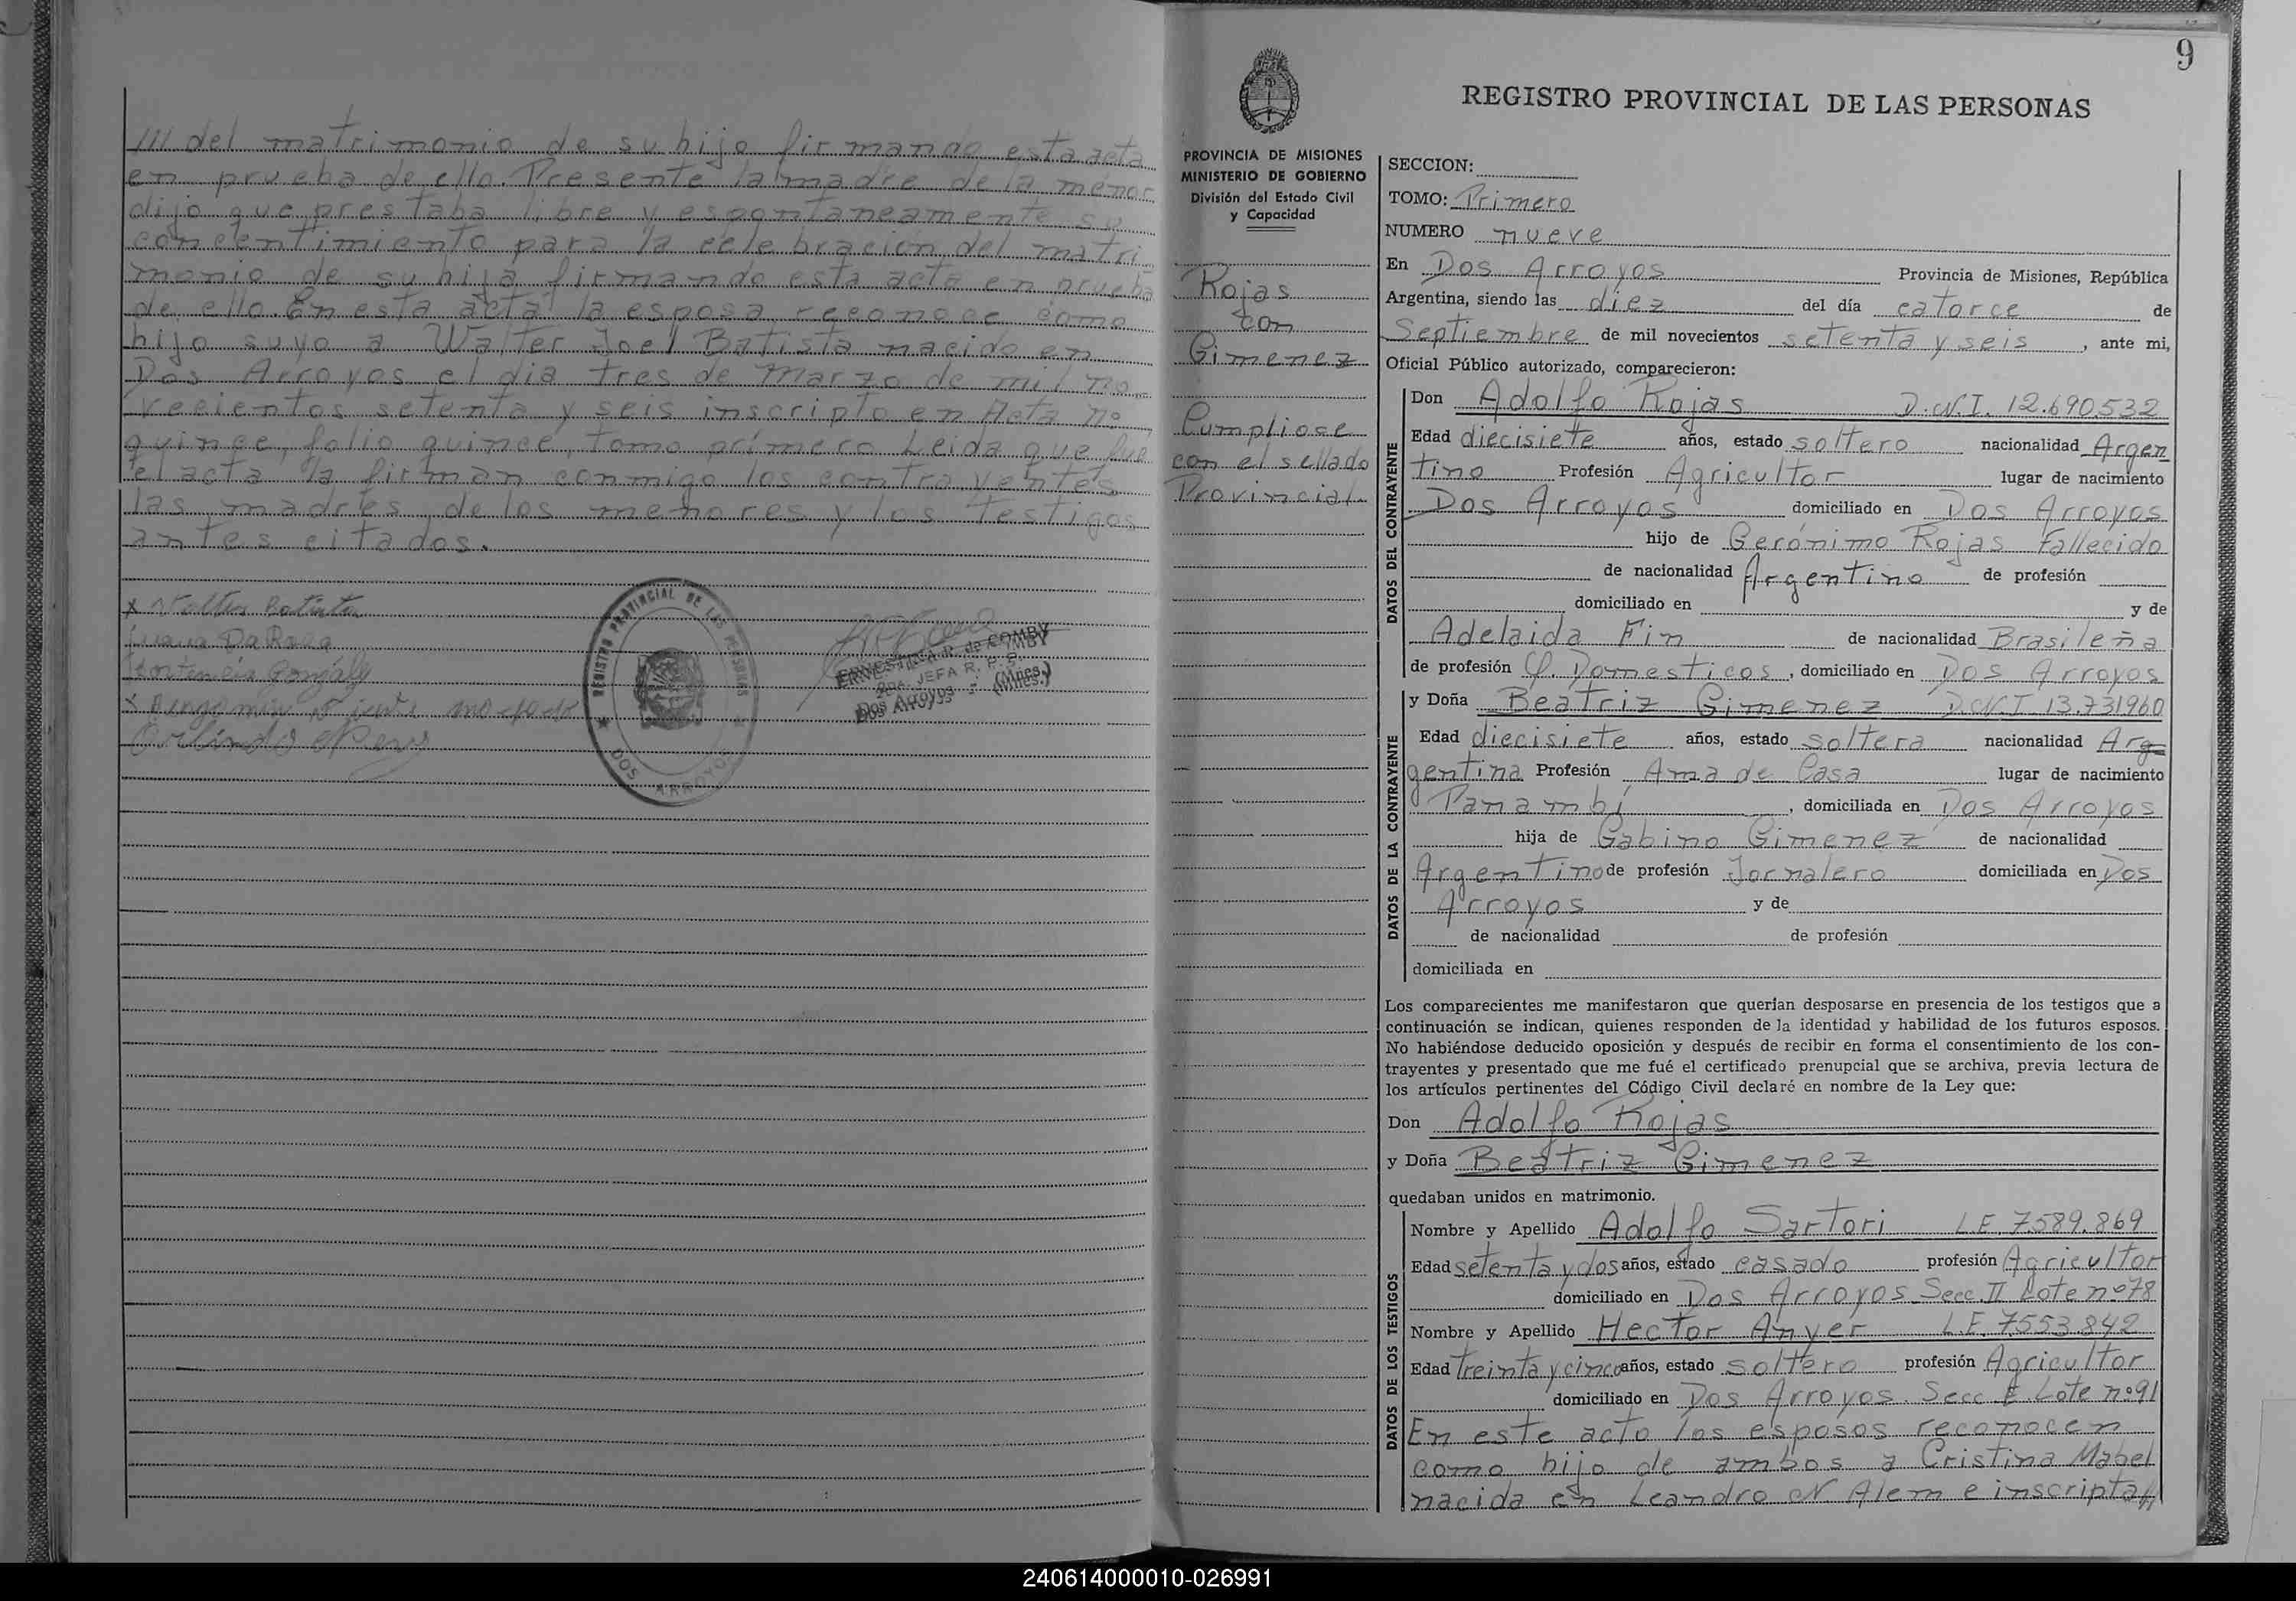 /// del matrimonio de su hijo firmando esta acta
en prueba de ello. Presente la madre de la menor
dijo que prestaba libre y espontaneamente su
consentimiento para la celebracion del matri
monio de su hija firmando esta acta en prueba
de ello. En esta acta la esposa reconoce como
hijo suyo a Walter Joel Batista nacido en
Dos Arroyos el dia tres de Marzo de mil no
vecientos setenta y seis inscripto en Acta nº
quince, folio quince, tomo primero Leida que fue
el acta la firman conmigo los contrayentes
las madres de los menores y los testigos
antes citados.
REGISTRO PROVINCIAL DE LAS PERSONAS
DOS ARROYOS
JEFA R. P. S.
Dos Arroyos (Mnes.)
9
REGISTRO PROVINCIAL DE LAS PERSONAS
PROVINCIA DE MISIONES
MINISTERIO DE GOBIERNO
División del Estado Civil
y Capacidad
Rojas
con
Gimenez
Cumpliose
con el sellado
Provincial
SECCION:
TOMO: Primero
NUMERO nueve
En Dos Arroyos Provincia de Misiones, República
Argentina, siendo las diez del día catorce de
Septiembre de mil novecientos setenta y seis, ante mi,
Oficial Público autorizado, comparecieron:
DATOS DEL CONTRAYENTE
Don Adolfo Rojas D.N.I. 12.690.532
Edad diecisiete años, estado soltero nacionalidad Argen
tino Profesión Agricultor lugar de nacimiento
Dos Arroyos domiciliado en Dos Arroyos
hijo de Gerónimo Rojas Fallecido
de nacionalidad Argentino de profesión
domiciliado en y de
Adelaida Fin de nacionalidad Brasileña
de profesión Q. Domesticos, domiciliado en Dos Arroyos
DATOS DE LA CONTRAYENTE
y Doña Beatriz Gimenez D.N.I 13.731960
Edad diecisiete años, estado soltera nacionalidad Arg
gentina Profesión Ama de Casa lugar de nacimiento
Panambí, domiciliada en Dos Arroyos
hija de Gabino Gimenez de nacionalidad
Argentino de profesión Jornalero domiciliada en Dos
Arroyos y de
de nacionalidad de profesión
domiciliada en
Los comparecientes me manifestaron que querían desposarse en presencia de los testigos que a
continuación se indican, quienes responden de la identidad y habilidad de los futuros esposos.
No habiéndose deducido oposición y después de recibir en forma el consentimiento de los con-
trayentes y presentado que me fué el certificado prenupcial que se archiva, previa lectura de
los artículos pertinentes del Código Civil declaré en nombre de la Ley que:
Don Adolfo Rojas
y Doña Beatriz Gimenez
quedaban unidos en matrimonio.
DATOS DE LOS TESTIGOS
Nombre y Apellido Adolfo Sartori L.E. 7.589.869
Edad setenta y dos años, estado casado profesión Agricultor
domiciliado en Dos Arroyos Secc. II Lote nº 78
Nombre y Apellido Hector Anyer L.E. 7.553.842
Edad treinta y cinco años, estado soltero profesión Agricultor
domiciliado en Dos Arroyos Secc. Lote nº 91
En este acto los esposos reconocen
como hijo de ambos a Cristina Mabel
nacida en Leandro N Alem e inscripta //
240614000010-026991